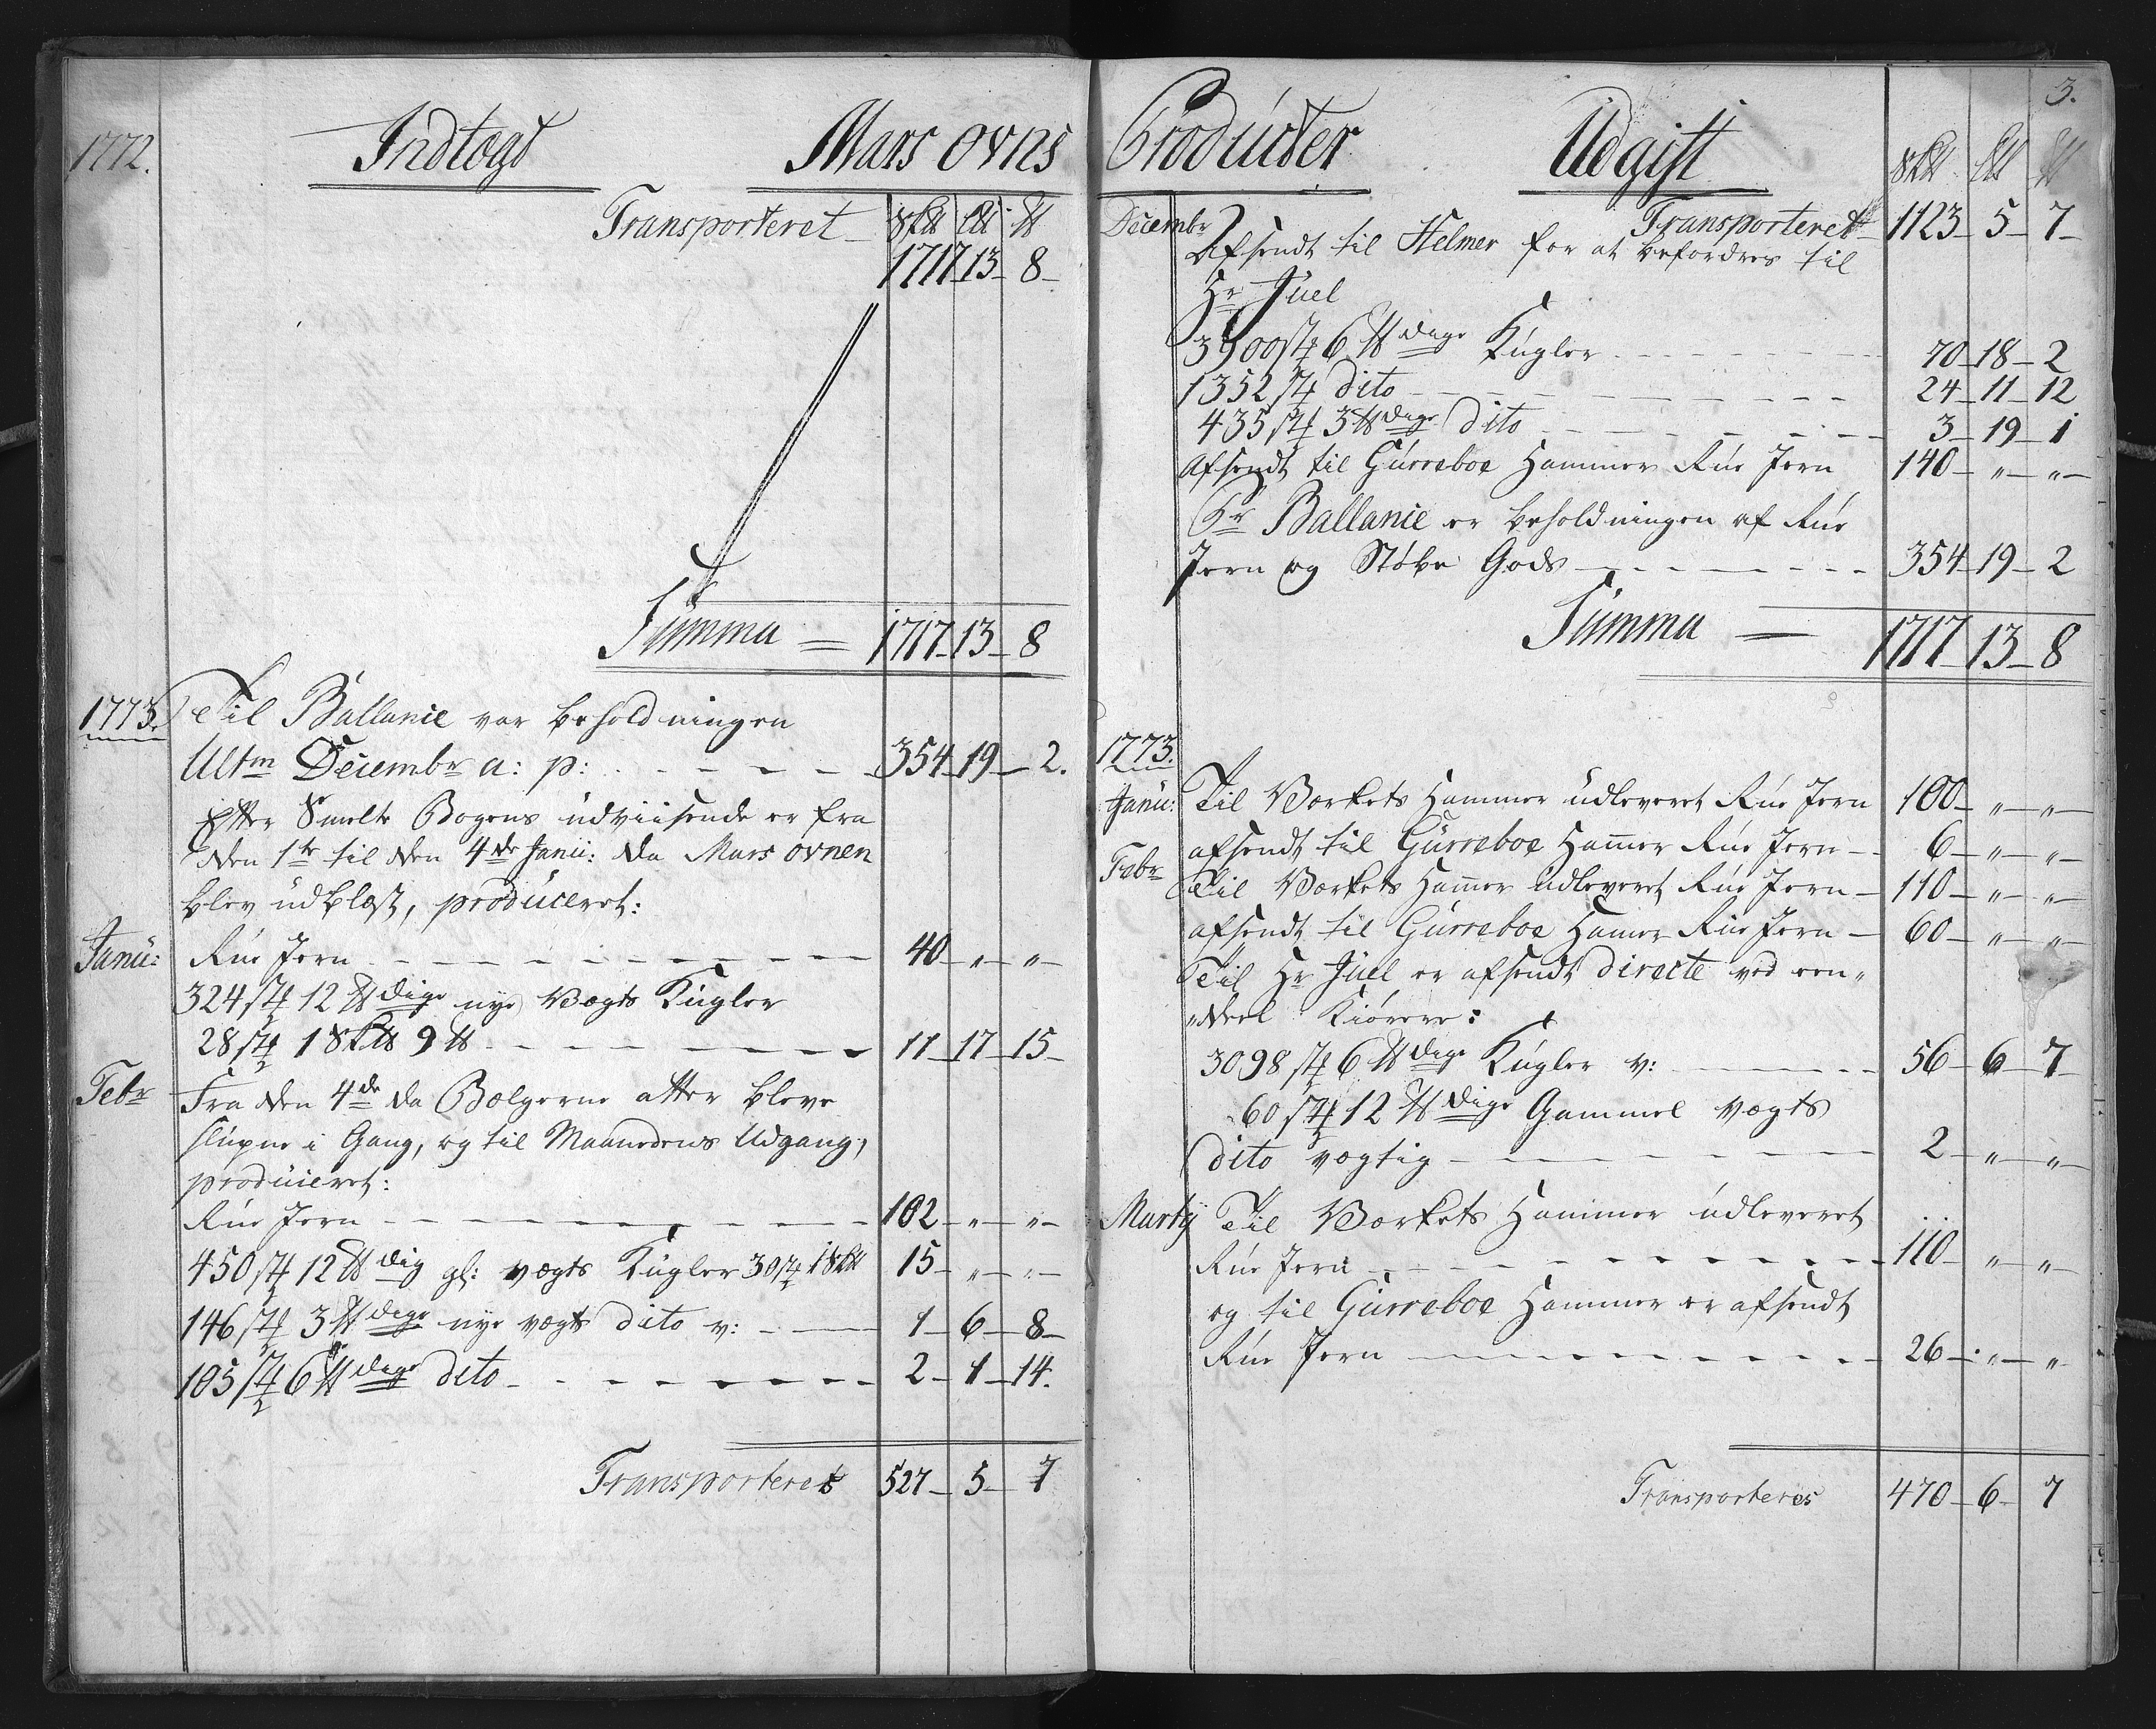 1772. Indtægt Mars Ovns
Transporteret 8℔ L℔ ℔
1717 13 8
Summa = 1717 13 8
1773. Til Ballance var beholdningen
Ultm Decembr a: p: 354 19 2.
Efter Smelte Bogens udviisende er fra
den 1te til den 4de Janu: da Mars ovnen
blev udblæst, produceret:
Janu: Rue Jern 40 " "
324 st 12 ℔dige nye Vægts Kugler
28 st 1 8k℔ 9 ℔ 11 17 15
Febr Fra den 4de da Bælgerne atter bleve
slupne i Gang, og til Maanedens Udgang,
produceret:
Rue Jern 102 " "
450 st 12 ℔dig gl: vægts Kugler 30 st 1 8k℔ 15 " "
146 st 3 ℔dige nye vægts dito v: 1 6 8
105 st 6 ℔dige dito 2 1 14.
Transporteres 527 5 7
Producter Udgift 3.
8k℔ L℔ ℔
Decembr Transporteret 1123 5 7
Afsendt til Helmer for at befordres til
Hr Juel
3900 st 6 ℔dige Kugler 70 18 2
1352 st dito 24 11 12
435 st 3 ℔dige dito 3 19 1
Afsendt til Gurreboe Hammer Rue Jern 140 " "
Pr Ballance er beholdningen af Rue
Jern og Støbe Gods 354 19 2
Summa = 1717 13 8
1773.
Janu: Til Værkets Hammer udleveret Rue Jern 100 " "
afsendt til Gurreboe Hammer Rue Jern 6 " "
Febr Til Værkets Hammer udleveret Rue Jern 110 " "
afsendt til Gurreboe Hammer Rue Jern 60 " "
Til Hr Juel er afsendt directe ved een"
"deel Kiørere:
3098 st 6 ℔dige Kugler v: 56 6 7
60 st 12 ℔dige Gammel vægts
dito vægtig 2 " "
Martij Til Værkets Hammer udleveret
Rue Jern 110 " "
og til Gurreboe Hammer er afsendt
Rue Jern 26 " "
Transporteres 470 6 7